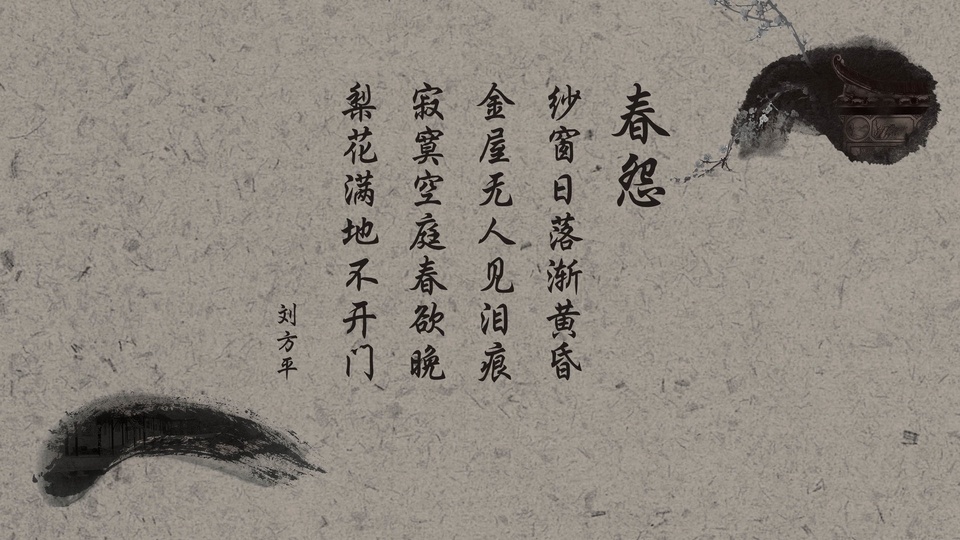 春怨
纱窗日落渐黄昏
金屋无人见泪痕
寂寞空庭春欲晚
梨花满地不开门
刘方平